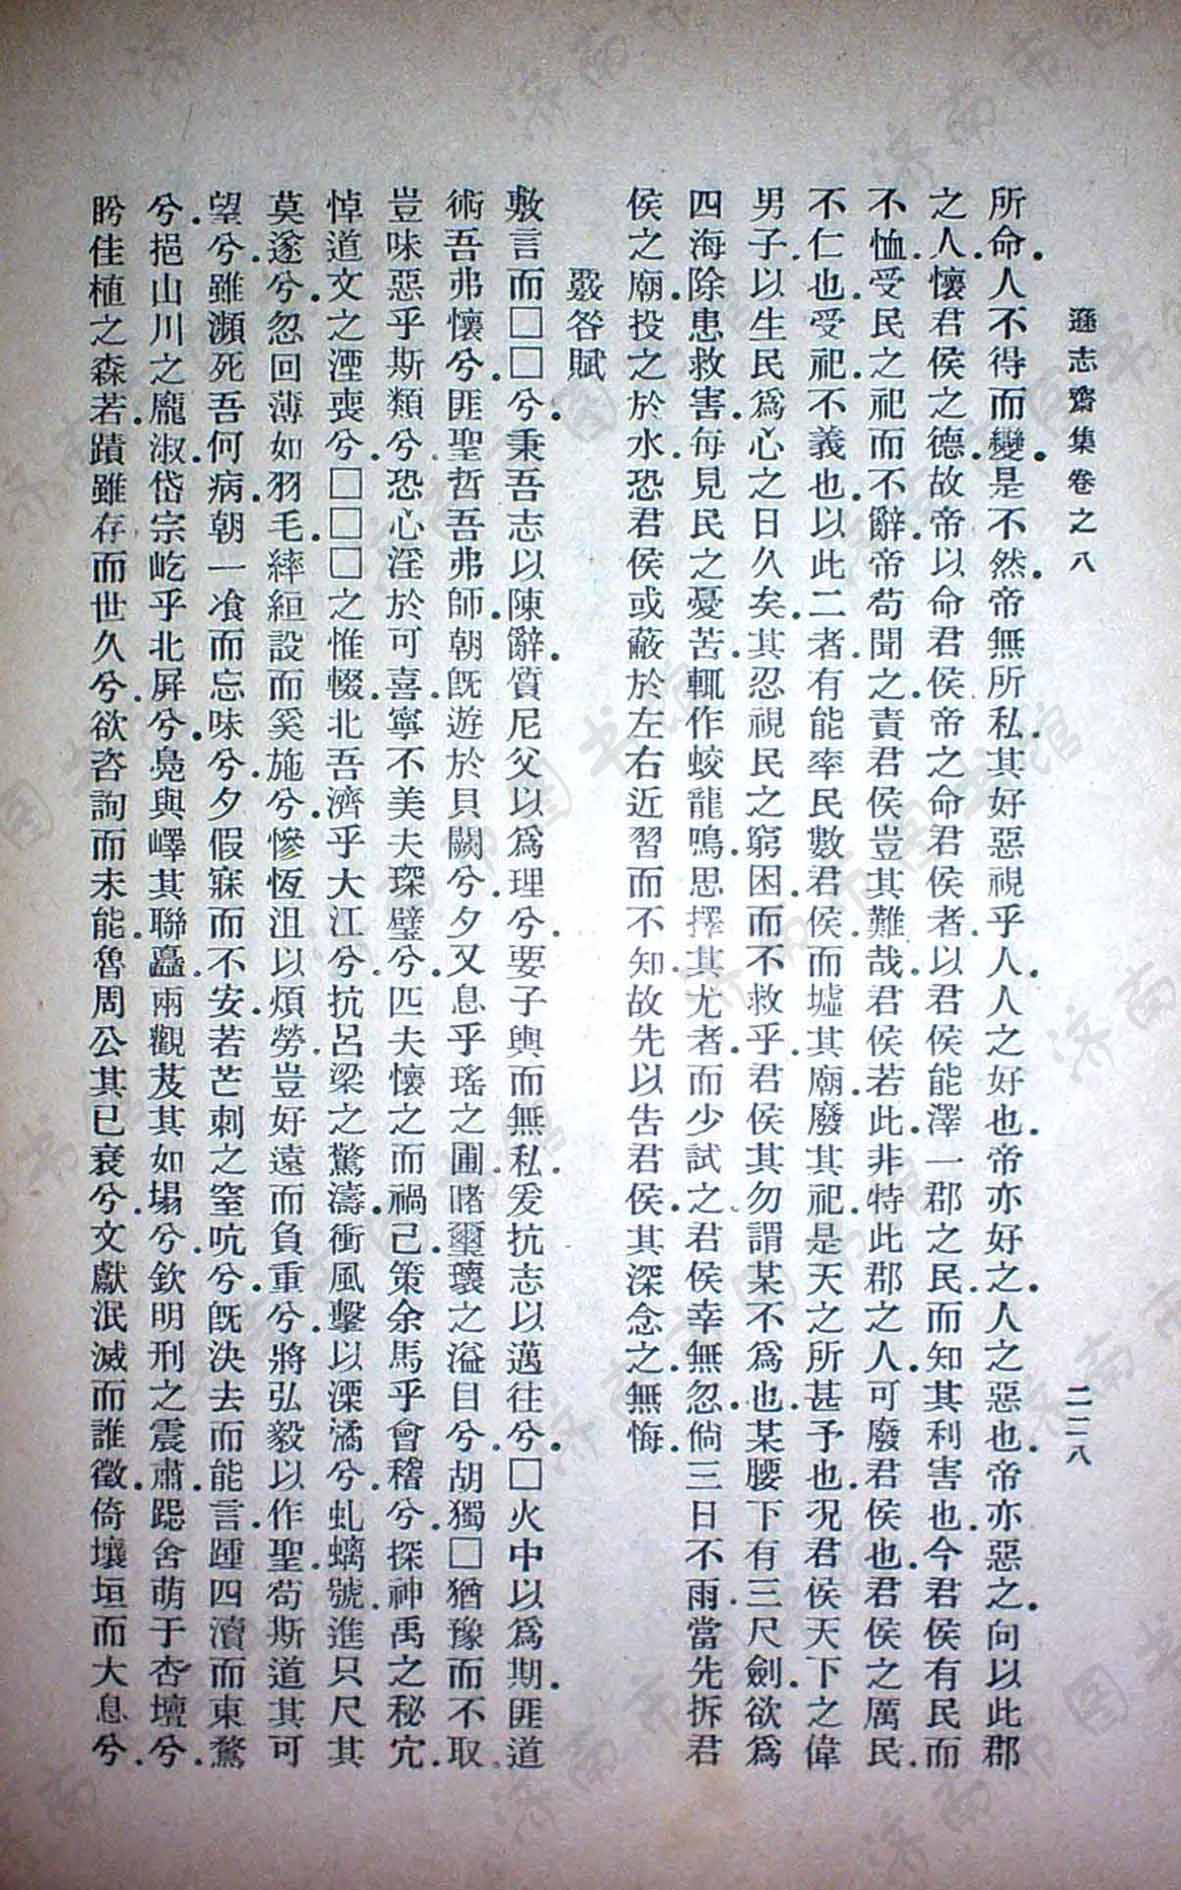 遜志齋集卷之八
二二八
所命人不得而變是不然帝無所私其好惡視乎人人之好也帝亦好之人之惡也帝亦惡之向以此郡
之人懷君侯之德故帝以命君侯帝之命君侯者以君侯能澤一郡之民而知其利害也今君侯有民而
不恤受民之祀而不辭帝苟聞之責君侯豈其難哉君侯若此非特此郡之人可廢君侯也君侯之厲民
不仁也受祀不義也以此二者有能率民數君侯而墟其廟廢其祀是天之所甚予也況君侯天下之偉
男子以生民爲心之日久矣其忍視民之窮困而不救乎君侯其勿謂某不爲也某腰下有三尺劍欲爲
四海除患救害每見民之憂苦輒作蛟龍鳴思擇其尤者而少試之君侯幸無忽倘三日不雨當先拆君
侯之廟投之於水恐君侯或蔽於左右近習而不知故先以告君侯其深念之無悔
覈咎賦
敷言而□□兮秉吾志以陳辭質尼父以爲理兮要子輿而無私爰抗志以邁往兮□火中以爲期匪道
術吾弗懷兮匪聖哲吾弗師朝旣遊於貝闕兮夕又息乎瑤之圃睹璽瓌之溢目兮胡獨□猶豫而不取
豈味惡乎斯類兮恐心淫於可喜寧不美夫琛璧兮匹夫懷之而禍己策余馬乎會稽兮探神禹之秘宂
悼道文之湮喪兮□□□之惟輟北吾濟乎大江兮抗呂梁之驚濤衝風擊以溧潏兮虬螭號進只尺其
莫遂兮忽回薄如羽毛繂絙設而奚施兮慘恆沮以煩勞豈好遠而負重兮將弘毅以作聖苟斯道其可
望兮雖瀕死吾何病朝一飡而忘味兮夕假寐而不安若芒刺之窒吭兮旣決去而能言踵四瀆而東騖
兮挹山川之龐淑岱宗屹乎北屏兮鳧與嶧其聯矗兩觀芨其如場兮欽明刑之震肅跽舍萌于杏壇兮
盻佳植之森若蹟雖存而世久兮欲咨詢而未能魯周公其已衰兮文獻泯滅而誰徵倚壞垣而大息兮